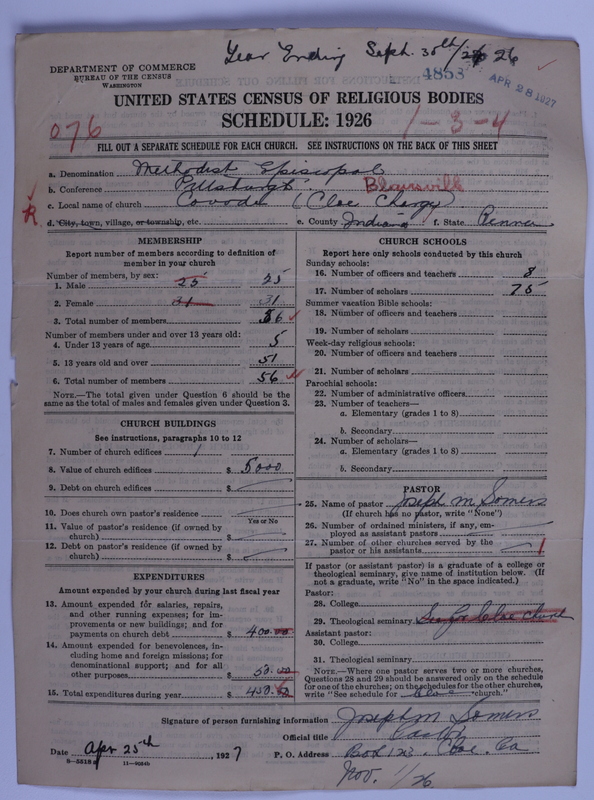 Year Ending Sept. 30th/26 26
DEPARTMENT OF COMMERCE
BUREAU OF THE CENSUS
WASHINGTON
4853
APR 28 1927
UNITED STATES CENSUS OF RELIGIOUS BODIES
SCHEDULE: 1926
076
1-3-4
FILL OUT A SEPARATE SCHEDULE FOR EACH CHURCH. SEE INSTRUCTIONS ON THE BACK OF THIS SHEET
a. Denomination Methodist Episcopal
b. Conference Pittsburgh Blairsville
c. Local name of church Covode (Cloe Charge)
R d. City, town, village, or township, etc. e. County Indiana f. State Penna
MEMBERSHIP
Report number of members according to definition of
member in your church
Number of members, by sex:
1. Male 25 25
2. Female 31 31
3. Total number of members 56
Number of members under and over 13 years old:
4. Under 13 years of age 5
5. 13 years old and over 51
6. Total number of members 56
NOTE.—The total given under Question 6 should be
the same as the total of males and females given under Question 3.
CHURCH BUILDINGS
See instructions, paragraphs 10 to 12
7. Number of church edifices 1
8. Value of church edifices $ 5000
9. Debt on church edifices $
10. Does church own pastor's residence
Yes or No
11. Value of pastor's residence (if owned by
church) $
12. Debt on pastor's residence (if owned by
church) $
EXPENDITURES
Amount expended by your church during last fiscal year
13. Amount expended for salaries, repairs,
and other running expenses; for im-
provements or new buildings; and for
payments on church debt $ 400.00
14. Amount expended for benevolences, in-
cluding home and foreign missions; for
denominational support; and for all
other purposes $ 50.00
15. Total expenditures during year $ 450.00
CHURCH SCHOOLS
Report here only schools conducted by this church
Sunday schools:
16. Number of officers and teachers 8
17. Number of scholars 75
Summer vacation Bible schools:
18. Number of officers and teachers
19. Number of scholars
Week-day religious schools:
20. Number of officers and teachers
21. Number of scholars
Parochial schools:
22. Number of administrative officers
23. Number of teachers—
a. Elementary (grades 1 to 8)
b. Secondary
24. Number of scholars—
a. Elementary (grades 1 to 8)
b. Secondary
PASTOR
25. Name of pastor Joseph M Somers
(If church has no pastor, write "None")
26. Number of ordained ministers, if any, em-
ployed as assistant pastors
27. Number of other churches served by the
pastor or his assistants 1
If pastor (or assistant pastor) is a graduate of a college or
theological seminary, give name of institution below. (If
not a graduate, write "No" in the space indicated.)
Pastor:
28. College
29. Theological seminary See for Cloe Church
Assistant pastor:
30. College
31. Theological seminary
NOTE.—Where one pastor serves two or more churches,
Questions 28 and 29 should be answered only on the schedule
for one of the churches; on the schedules for the other churches,
write "See schedule for Cloe church."
Signature of person furnishing information Joseph M Somers
Official title Pastor
Date Apr 25th, 1927
P. O. Address Box 123. Cloe. Pa
Nov. 1/26
8—5518 a 11—9054b